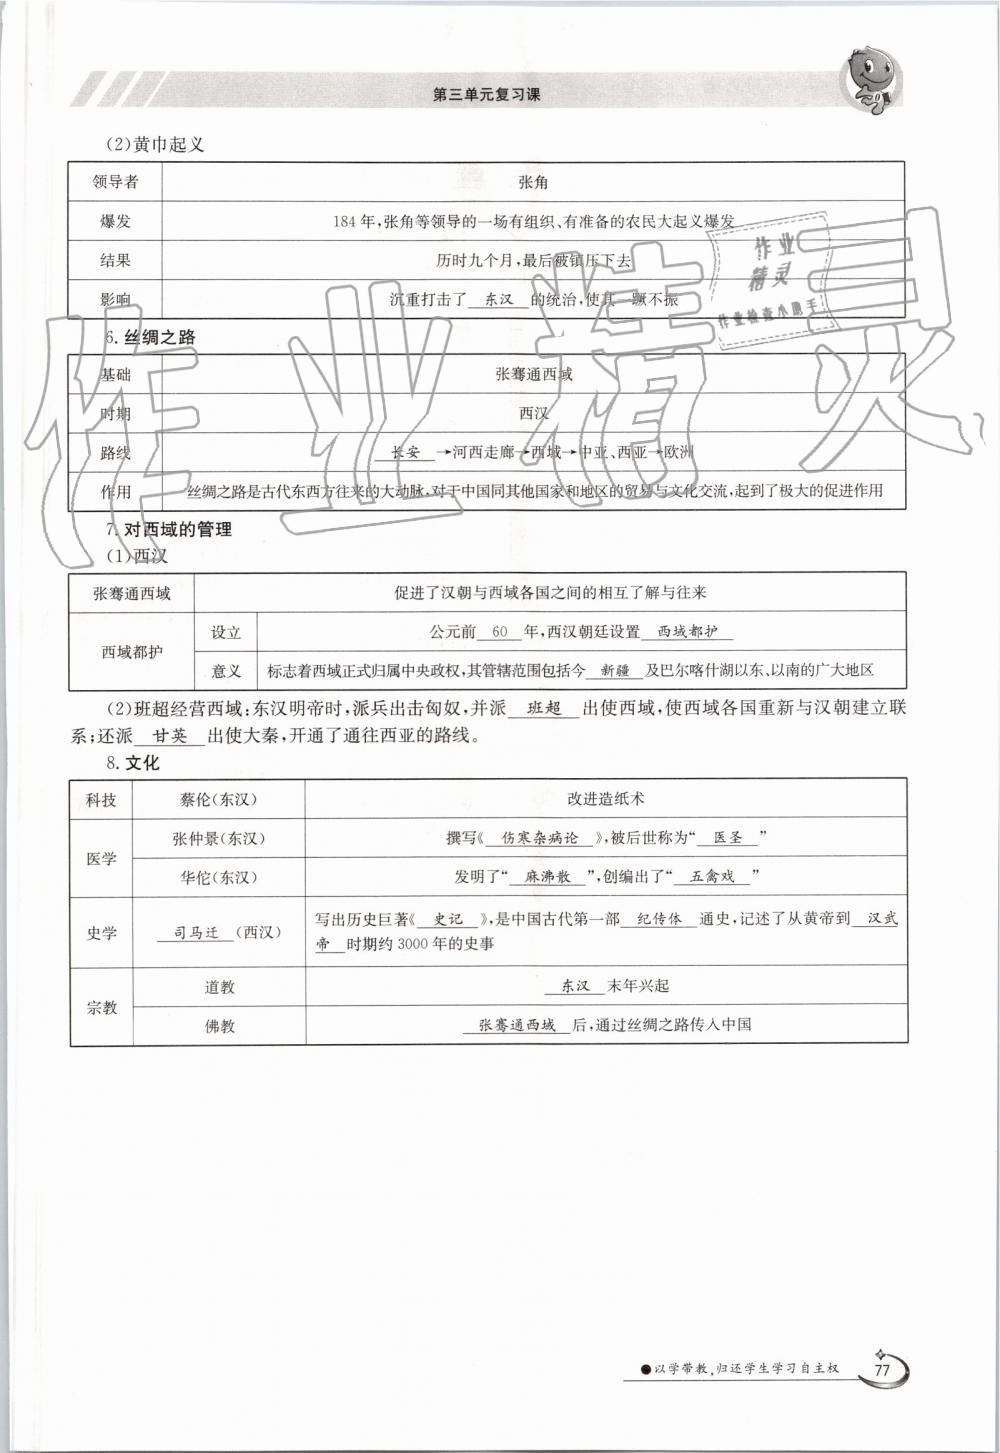 第三单元复习课
(2)黄巾起义
领导者 张角
爆发 184年,张角等领导的一场有组织、有准备的农民大起义爆发
结果 历时九个月,最后被镇压下去
影响 沉重打击了 东汉 的统治,使其一蹶不振
6. 丝绸之路
基础 张骞通西域
时期 西汉
路线 长安 →河西走廊→西域→中亚、西亚→欧洲
作用 丝绸之路是古代东西方往来的大动脉,对于中国同其他国家和地区的贸易与文化交流,起到了极大的促进作用
7. 对西域的管理
(1)西汉
张骞通西域 促进了汉朝与西域各国之间的相互了解与往来
西域都护 设立 公元前 60 年,西汉朝廷设置 西域都护
意义 标志着西域正式归属中央政权,其管辖范围包括今 新疆 及巴尔喀什湖以东、以南的广大地区
(2)班超经营西域:东汉明帝时,派兵出击匈奴,并派 班超 出使西域,使西域各国重新与汉朝建立联
系;还派 甘英 出使大秦,开通了通往西亚的路线。
8. 文化
科技 蔡伦(东汉) 改进造纸术
医学 张仲景(东汉) 撰写《 伤寒杂病论 》,被后世称为“ 医圣 ”
华佗(东汉) 发明了“ 麻沸散 ”,创编出了“ 五禽戏 ”
史学 司马迁 (西汉) 写出历史巨著《 史记 》,是中国古代第一部 纪传体 通史,记述了从黄帝到 汉武
帝 时期约3000年的史事
宗教 道教 东汉 末年兴起
佛教 张骞通西域 后,通过丝绸之路传入中国
●以学带教,归还学生学习自主权 77
作业精灵
作业
精灵
作业检查小助手